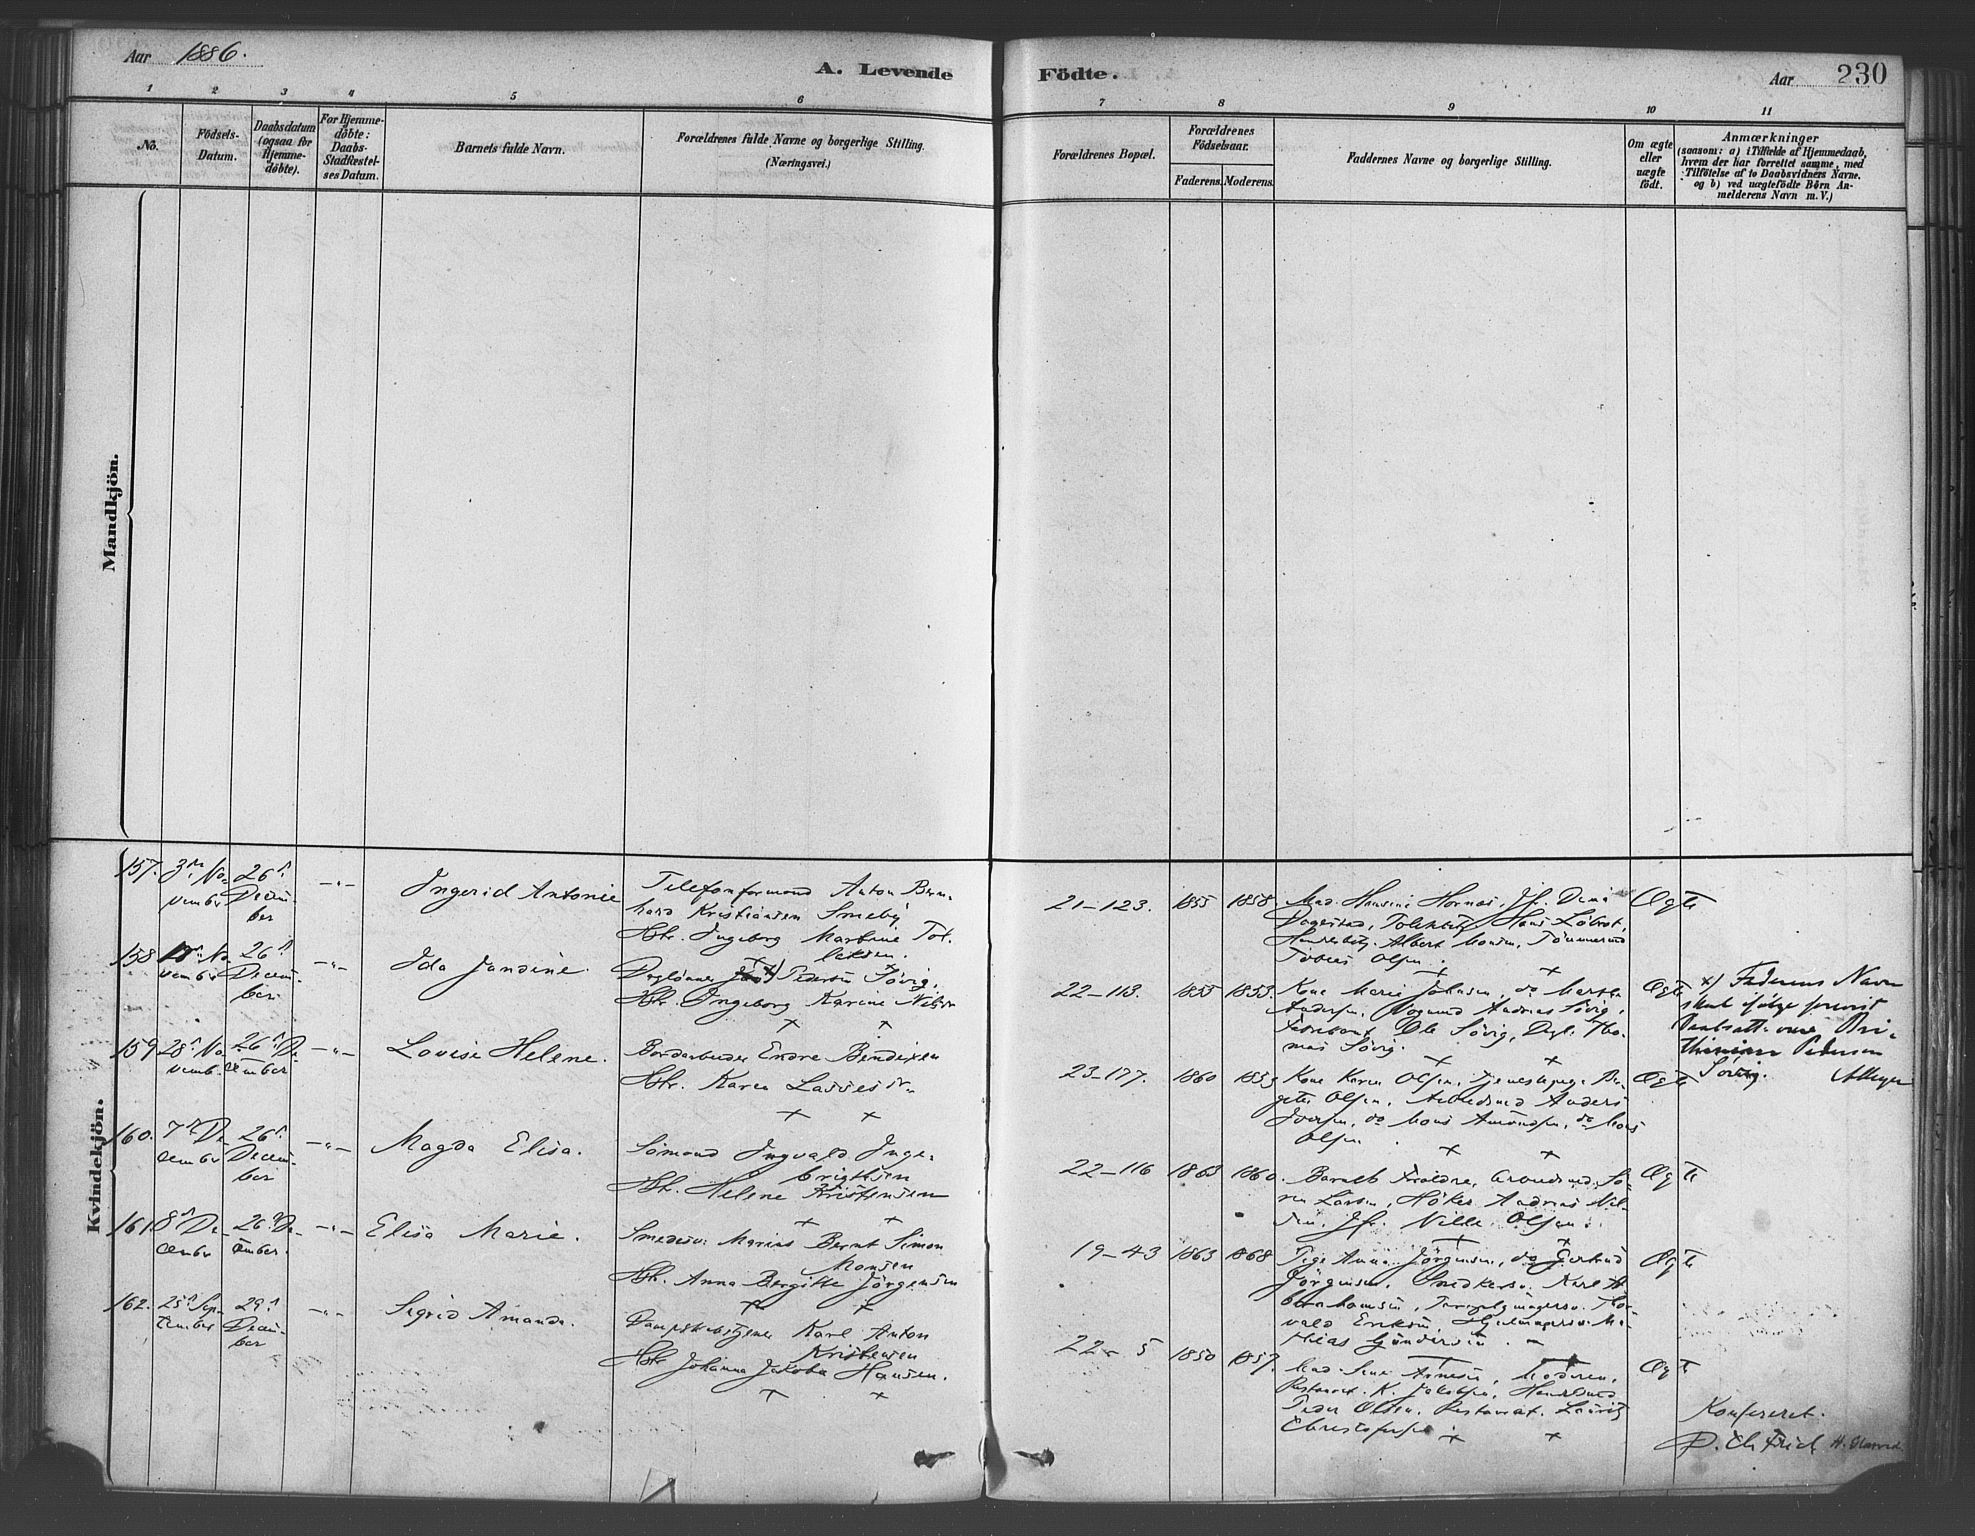 Aar 1886.
A. Levende Födte.
Aar 230
1 2 3 4 5 6 7 8 9 10 11
No.
Födsels-
Datum.
Daabsdatum
(ogsaa for
Hjemme-
döbte).
For Hjemme-
döbte:
Daabs-
Stadfæstel-
ses Datum.
Barnets fulde Navn.
Forældrenes fulde Navne og borgerlige Stilling.
(Næringsvei.)
Forældrenes Bopæl.
Forældrenes
Födselsaar.
Faderens. Moderens.
Faddernes Navne og borgerlige Stilling.
Om ægte
eller
uægte
födt.
Anmærkninger
(saasom: a) i Tilfælde af Hjemmedaab,
hvem der har forrettet samme, med
Tilföielse af to Daabsvidners Navne.
og b) ved uægtefödte Börn An-
melderens Navn m. V.)
Mandkjön.
Kvindekjön.
157. 3die No-
vember
26d
Decem-
ber
Ingerid Antonie
Telefonformand Anton Bern-
hard Kristiansen Smeby
Hstr. Ingeborg Martine Tol-
lefsen.
21-123. 1855 1858.
Mad. Hansine Hornæs, Jf. Dina
Hans
Albert Monsen,
Tobias Olsen
Ægte
158 No-
vember
26d
Decem-
ber
Ida Jandine.
Daglönner x) Pedersen Sövig,
Hstr. Ingeborg Karine Nilsen
22-113. 1855 1853.
Kone Marie Johnsen, do Martha
Andersen, Andreas Sövig,
Ole Sövig, Tho-
mas Sövig.
Ægte
x) Faderens Navn
skal ifölge
Pedersen
Sövig.
159 28d No-
vemb.
26d De-
cember
Lovise Helene.
Bordarbeider Endre Bendixen
Hstr. Karen
23-177. 1860 1853
Kone Karen Olsen, Tjenestepige Ber-
gite Olsen, Arbeidsmd Anders
Iversen, do Mons Amundsen, do Mons
Olsen
Ægte
160. 7d De-
cember
26d
Decem-
ber
Magda Elisa.
Sömand Ingvald Inge-
brigtsen
Hstr. Helene Kristensen
22-116 1863 1860.
Barnets Forældre, Arbeidsmd. Sö-
ren Larsen, Höker Andreas Nil-
sen, Jf. Nille Olsen.
Ægte
161. 8d De-
cember
26d De-
cember.
Elisa Marie.
Smedesv. Marius Bernt Simon
Monsen
Hstr. Anna Bergitte Jörgensen
19-43 1863 1868
Pige Anna Jörgensen, do Gertrud
Jörgensen, Snedkersv. Karl A-
brahamsen, Thor-
vald Eriksen, Ma-
thias Gundersen
Ægte
162. 25d Sep-
tember
29d
Decem-
ber
Sigrid Amanda.
Dampskibstjener Karl Anton
Kristensen
Hstr Johanna Jakoba Hansen.
22- 5 1850 1857.
Mad. Sina Arnesen, Moderen,
Restaurat. K. Jakobsen,
Peder Olsen, Restaurat. Lauritz
Christophersen
Ægte
Konfereret.
D. Ch Frich